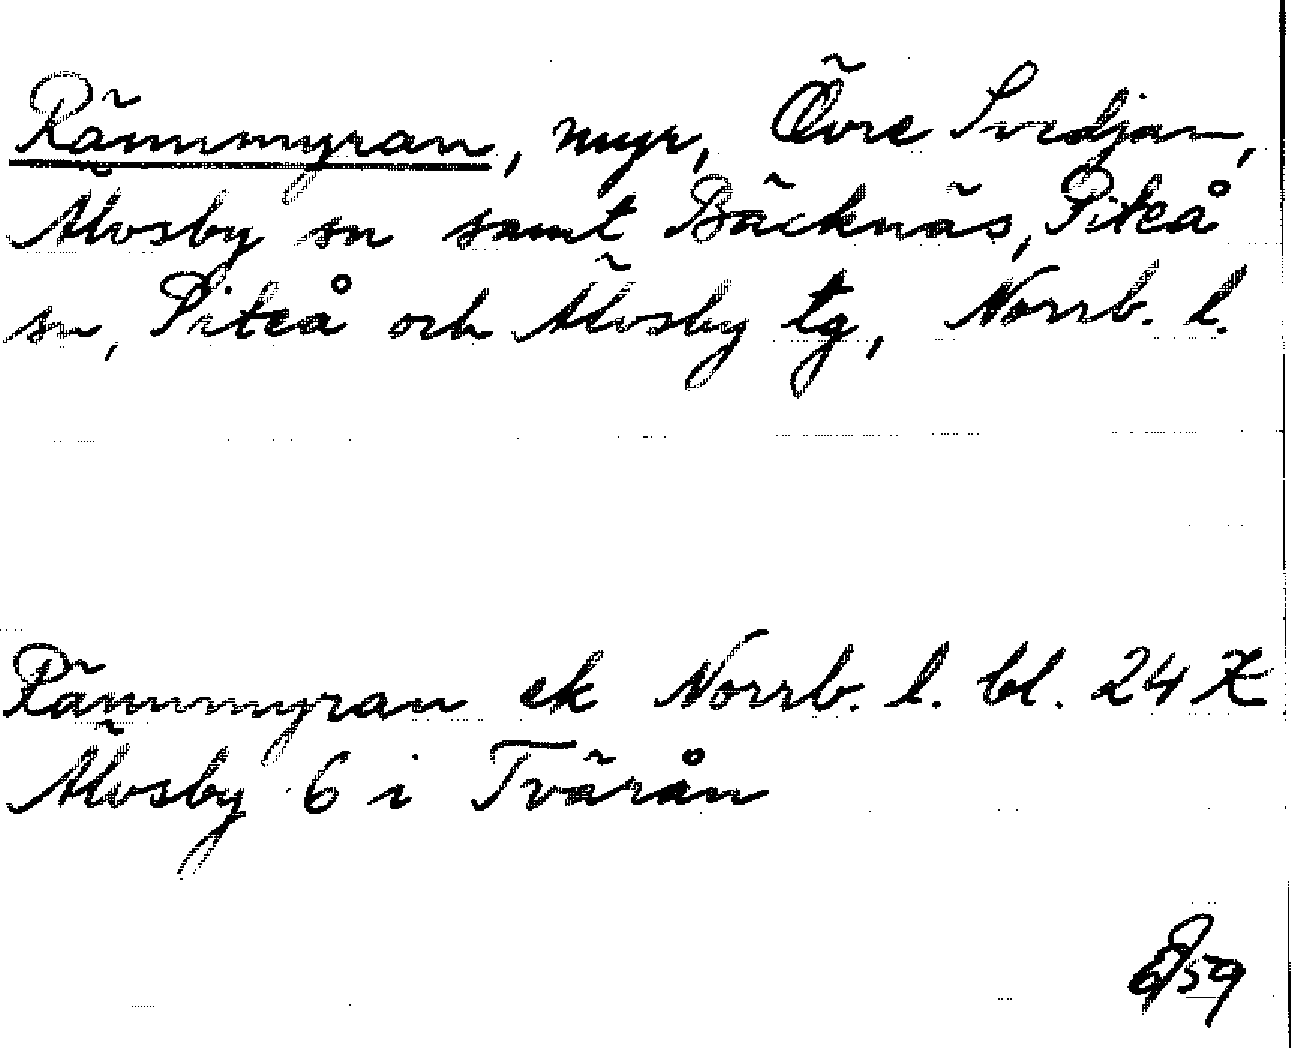 Rännmyran, myr, Övre Svedjan,
Älvsby sn samt Bäcknäs, Piteå
sn, Piteå och Älvsby tg, Norrb. l.
Rännmyran ek Norrb. l. bl. 24 K
Älvsby 6 i Tvärån